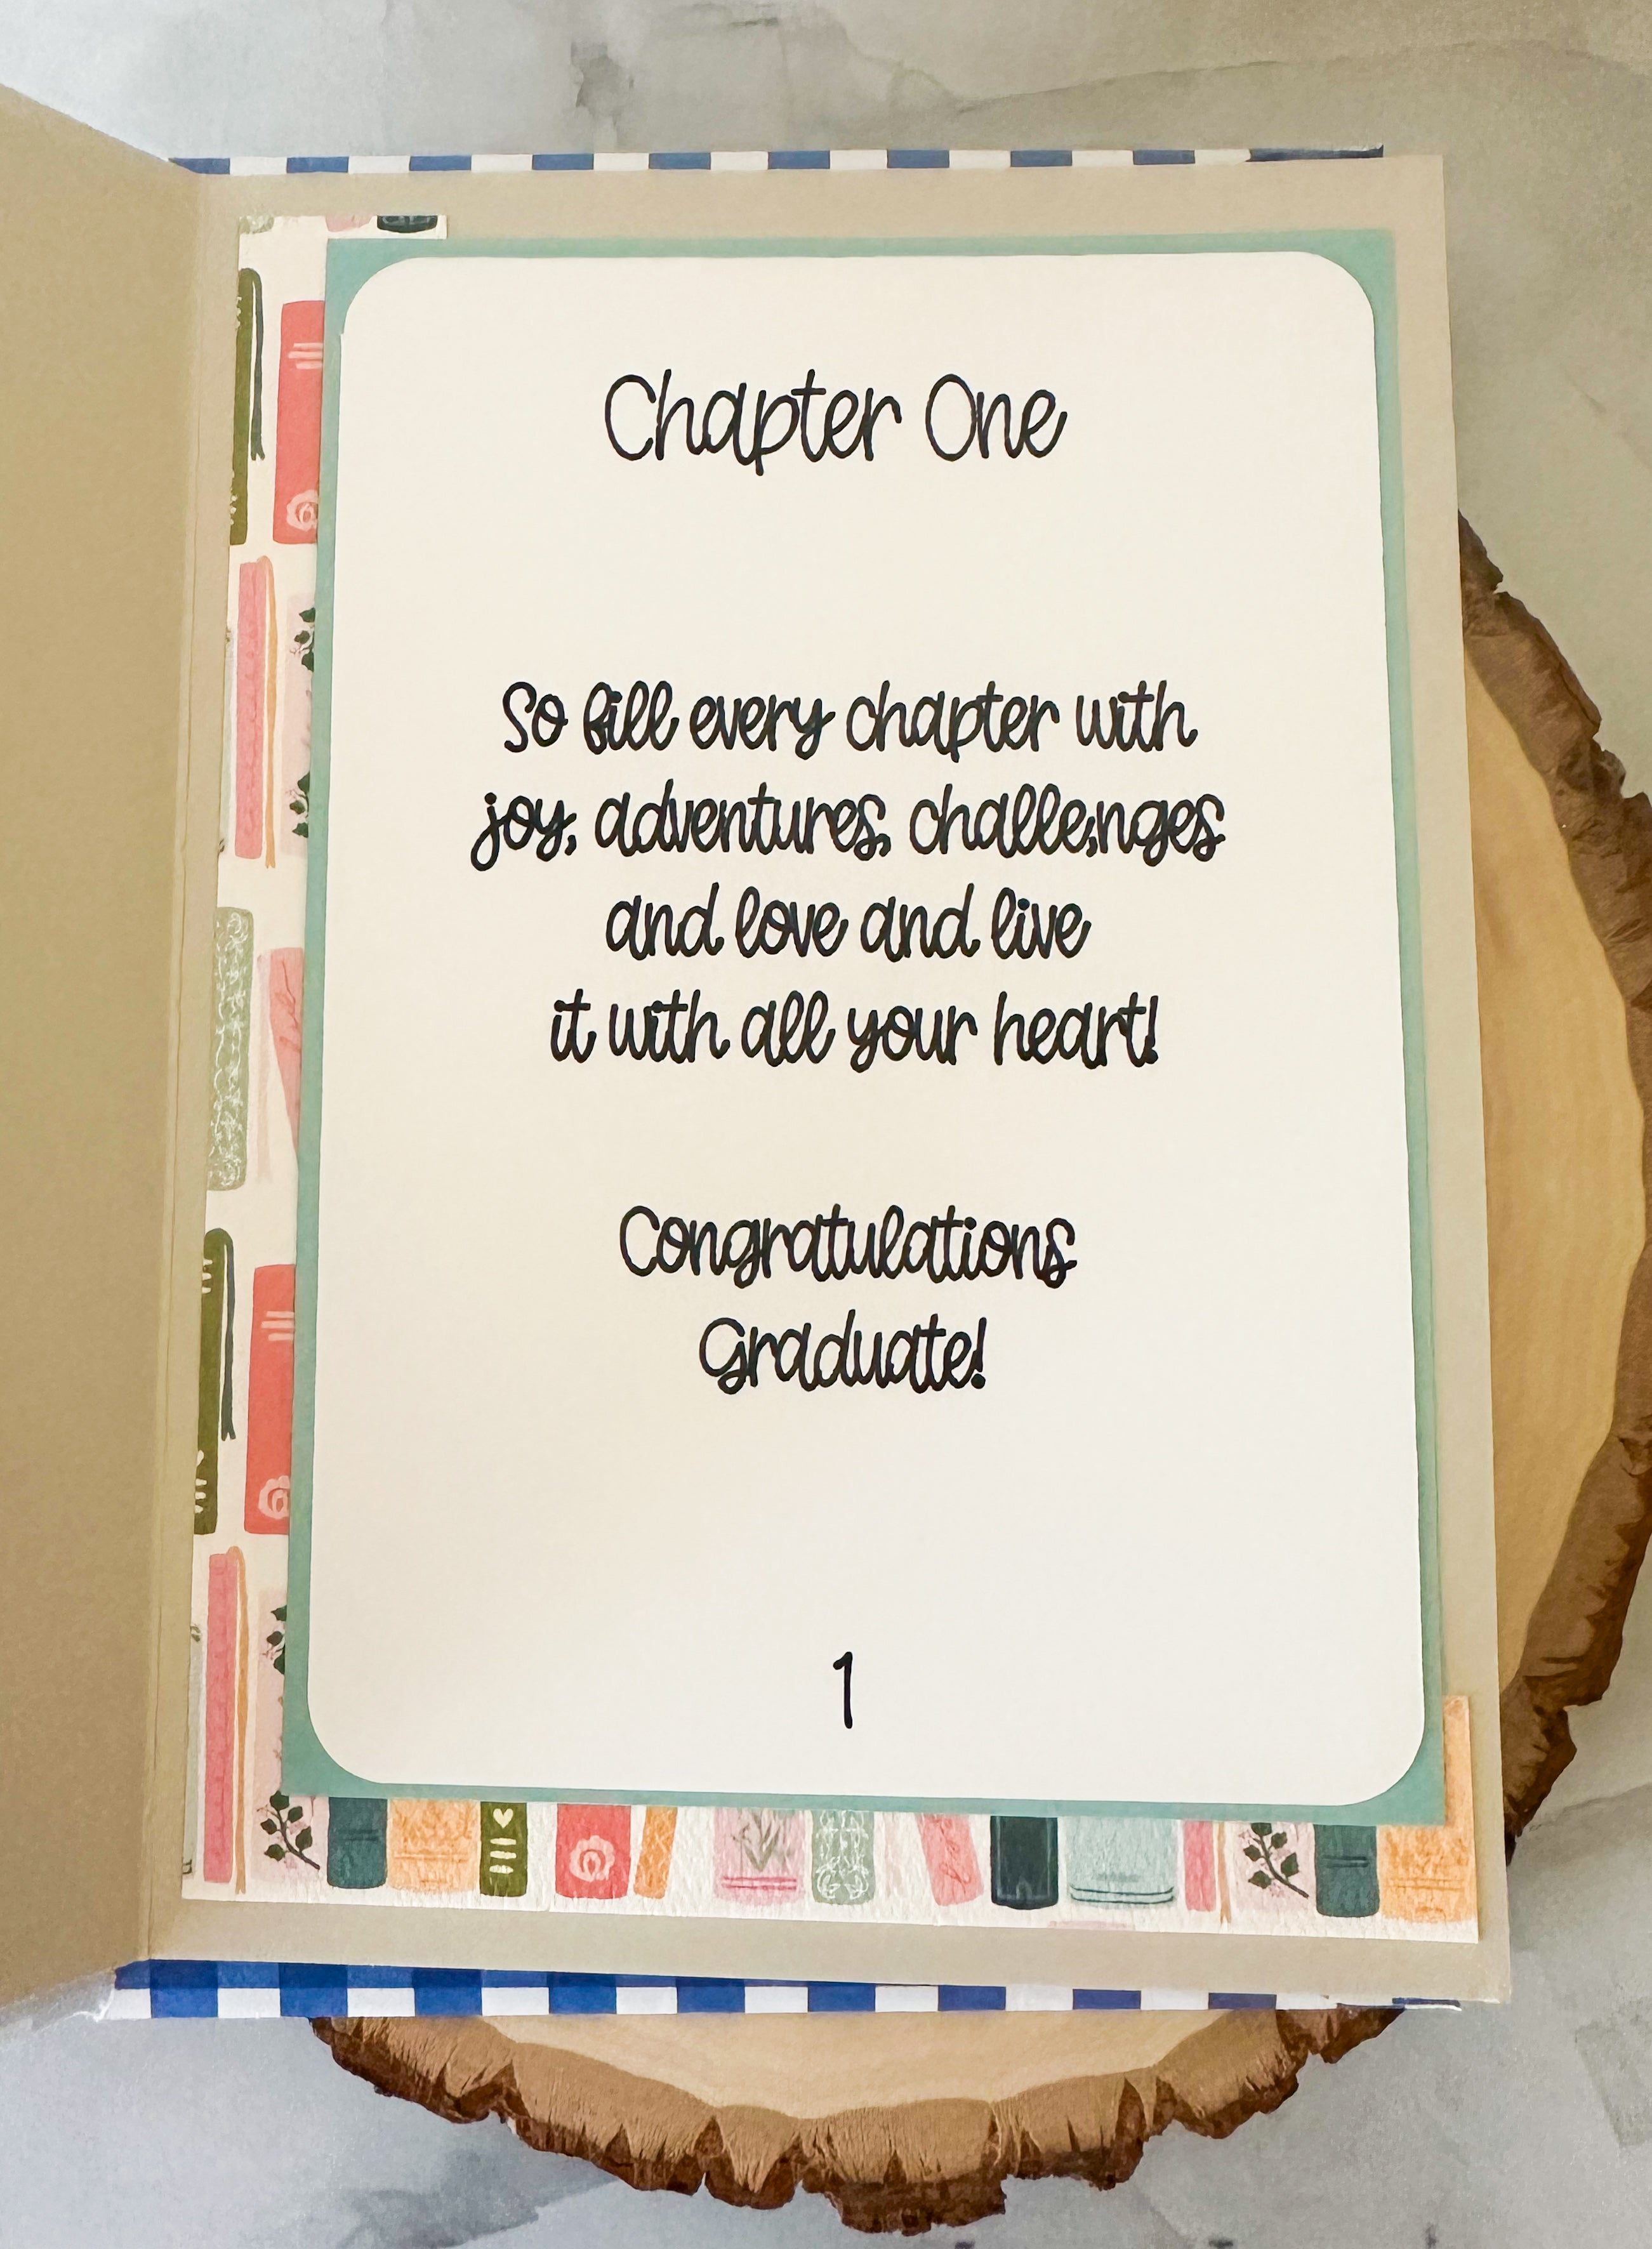 Chapter One
So fill every chapter with
joy, adventures, challenges
and love and live
it with all your heart!
Congratulations
Graduate!
1